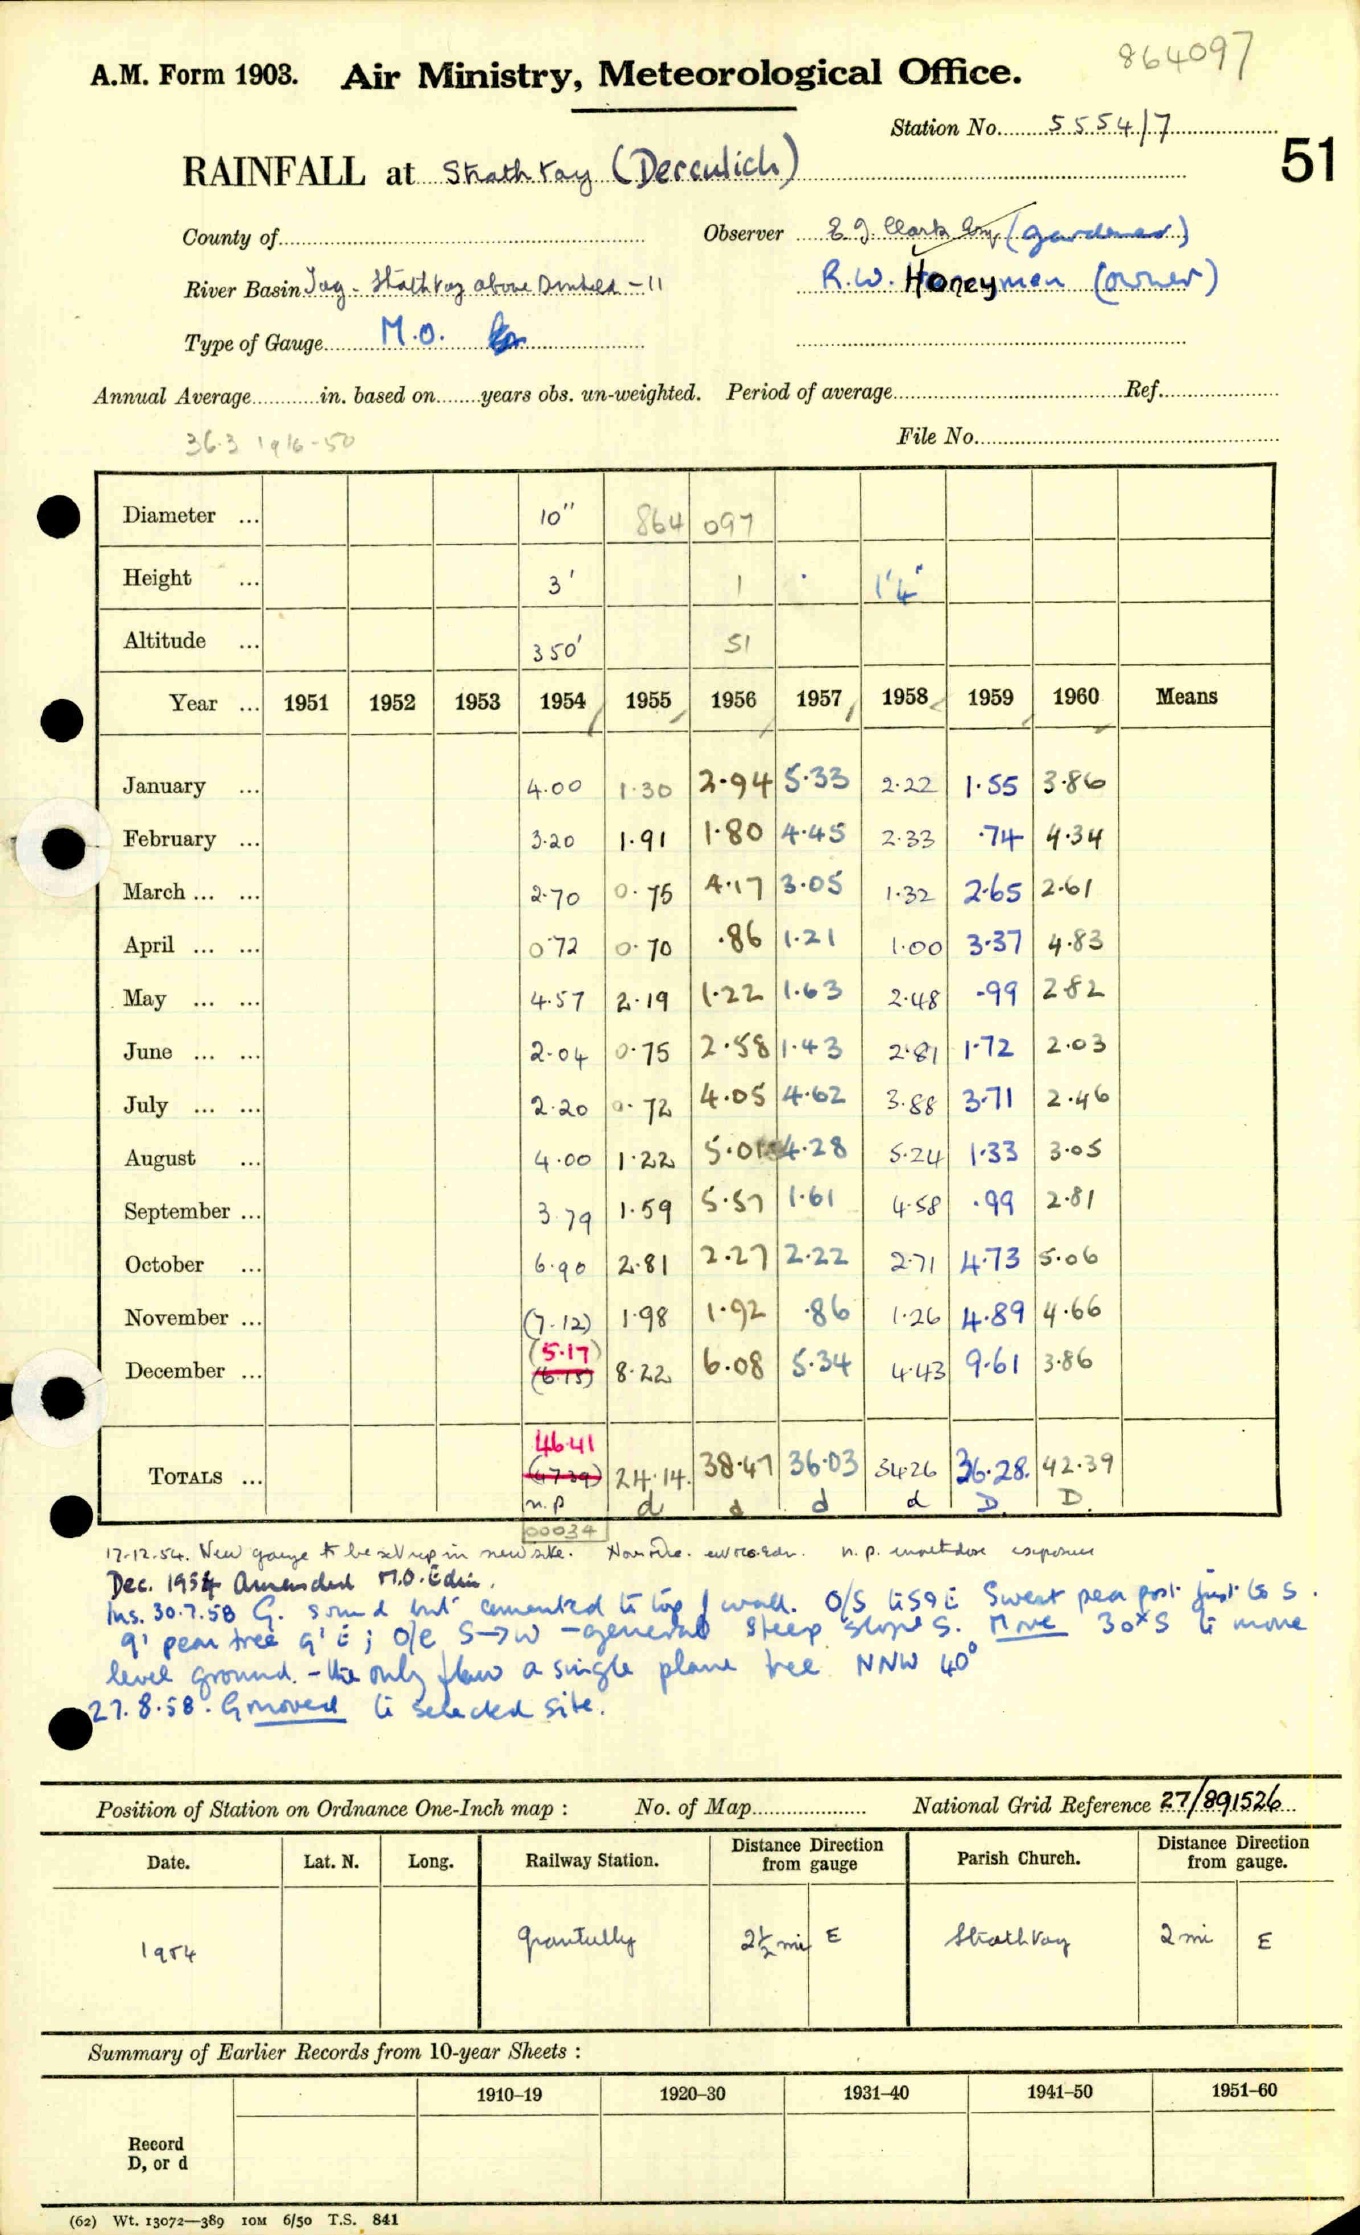 864097
A.M. Form 1903. Air Ministry, Meteorological Office.
Station No. 5554/7
51
RAINFALL at Strathtay (Derculich)
County of
Observer E J. Clark Esq (gardener)
River Basin Tay - Strathtay above Dunkeld - 11
R.W. Honeyman (owner)
Type of Gauge M.O.
Annual Average in. based on years obs. un-weighted. Period of average Ref.
36.3 1916-50
File No.
Diameter ... 10" 864 097
Height ... 3' 1 1'4"
Altitude ... 350' 51
Year ... 1951 1952 1953 1954 1955 1956 1957 1958 1959 1960 Means
January ... 4.00 1.30 2.94 5.33 2.22 1.55 3.86
February ... 3.20 1.91 1.80 4.45 2.33 .74 4.34
March ... ... 2.70 0.75 4.17 3.05 1.32 2.65 2.61
April ... ... 0.72 0.70 .86 1.21 1.00 3.37 4.83
May ... ... 4.57 2.19 1.22 1.63 2.48 .99 2.82
June ... ... 2.04 0.75 2.58 1.43 2.81 1.72 2.03
July ... ... 2.20 0.72 4.05 4.62 3.88 3.71 2.46
August ... 4.00 1.22 5.01 4.28 5.24 1.33 3.05
September ... 3.79 1.59 5.57 1.61 4.58 .99 2.81
October ... 6.90 2.81 2.27 2.22 2.71 4.73 5.06
November ... (7.12) 1.98 1.92 .86 1.26 4.89 4.66
(5.17)
December ... (6.15) 8.22 6.08 5.34 4.43 9.61 3.86
46.41
TOTALS ... (47.39) 24.14. 38.47 36.03 34.26 36.28. 42.39
n.p d d d d D. D.
00034
17-12.54. New gauge to be set up in new site. n.p. exposure
Dec. 1954 Amended M.O. Edin.
Ins. 30.7.58 G. sound but cemented to top of wall. O/S Sweet pea post just to S.
9' pear tree 9' E; O/e S→W - general steep slope S. Move 30ˣ S to more
level ground. - the only flaw a single plane tree NNW 40°
27.8.58. G moved to selected site.
Position of Station on Ordnance One-Inch map : No. of Map National Grid Reference 27/891526
Date. Lat. N. Long. Railway Station. Distance Direction from gauge Parish Church. Distance Direction from gauge.
1954 Grantully 2½ mi E Strathtay 2 mi E
Summary of Earlier Records from 10-year Sheets :
1910–19 1920–30 1931–40 1941–50 1951–60
Record
D, or d
(62) Wt. 13072—389 10M 6/50 T.S. 841